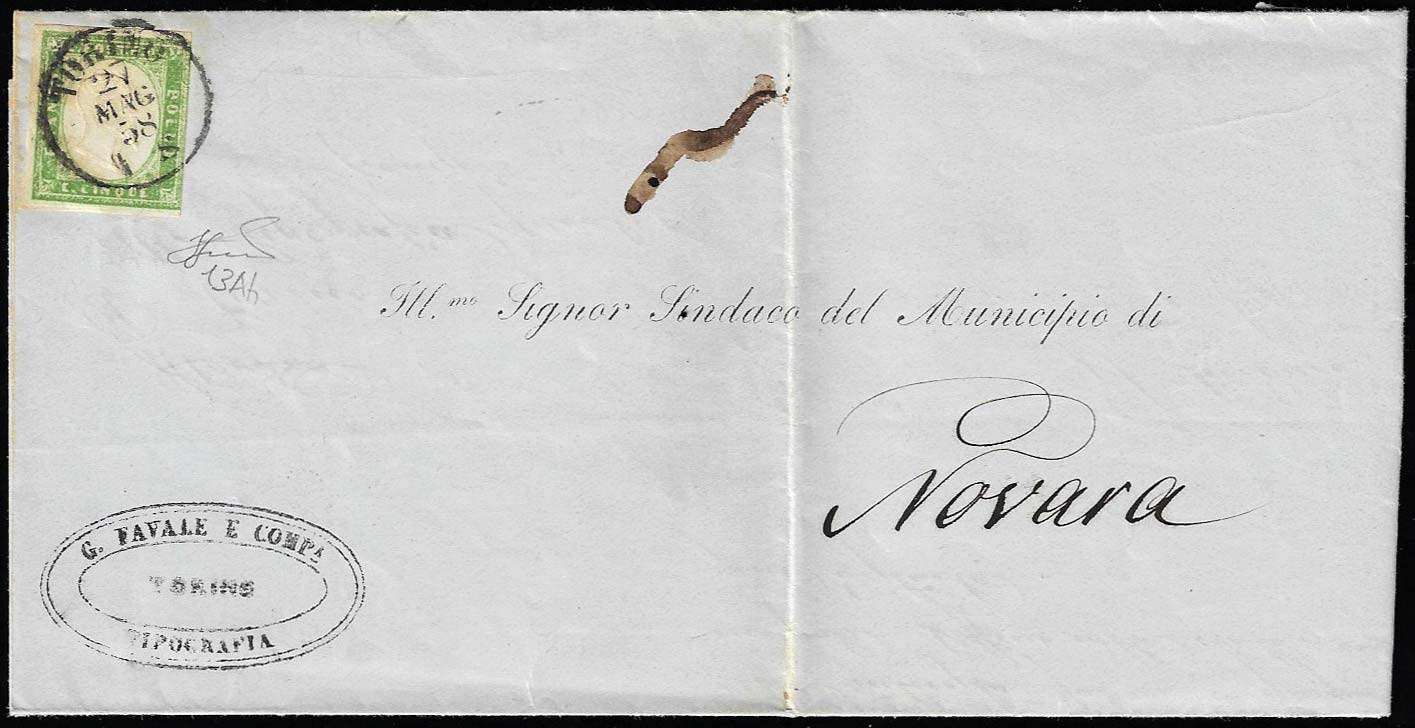 TORINO
27
MAG
58
BOLLO
C. CINQUE
13Ah
Ill.mo Signor Sindaco del Municipio di
Novara
G. FAVALE E COMPA
TORINO
TIPOGRAFIA